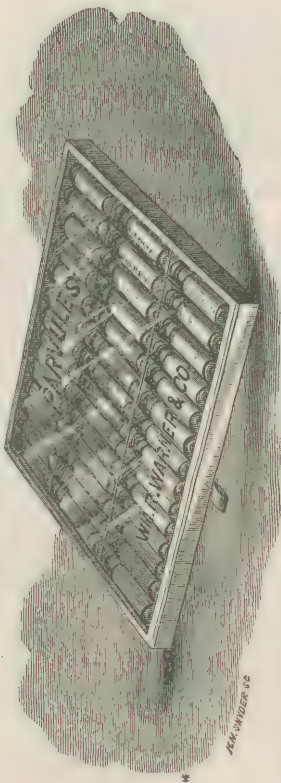 PARVULES
WM. R. WARNER & CO.
M.M. SNYDER SC
*